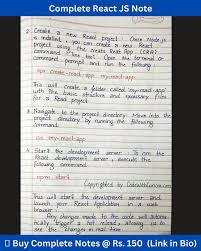 Complete React JS Note
2. Create a new React project Once Node.js
is installed, you can create a new React
project using the Create React App (CRA)
command line tool. Open the terminal or
command prompt and run the following
command
npx create-react-app my-react-app
This will create a folder called 'my-react-app'
with the basic structure and necessary files
for a React project
3. Navigate to the project directory: Move into the
project directory by running the following
command
cd my-react-app
4. Start the development server: To run the
React development server, execute the
following command
npm start
Copyrighted by CodeWithCurious.com
This will start the development server and
launch your React Application in a web
browser
Any changes made to the code will autom-
atically trigger a hot reload, allowing us to
see the changes in real time
Buy Complete Notes @ Rs. 150 (Link in Bio)